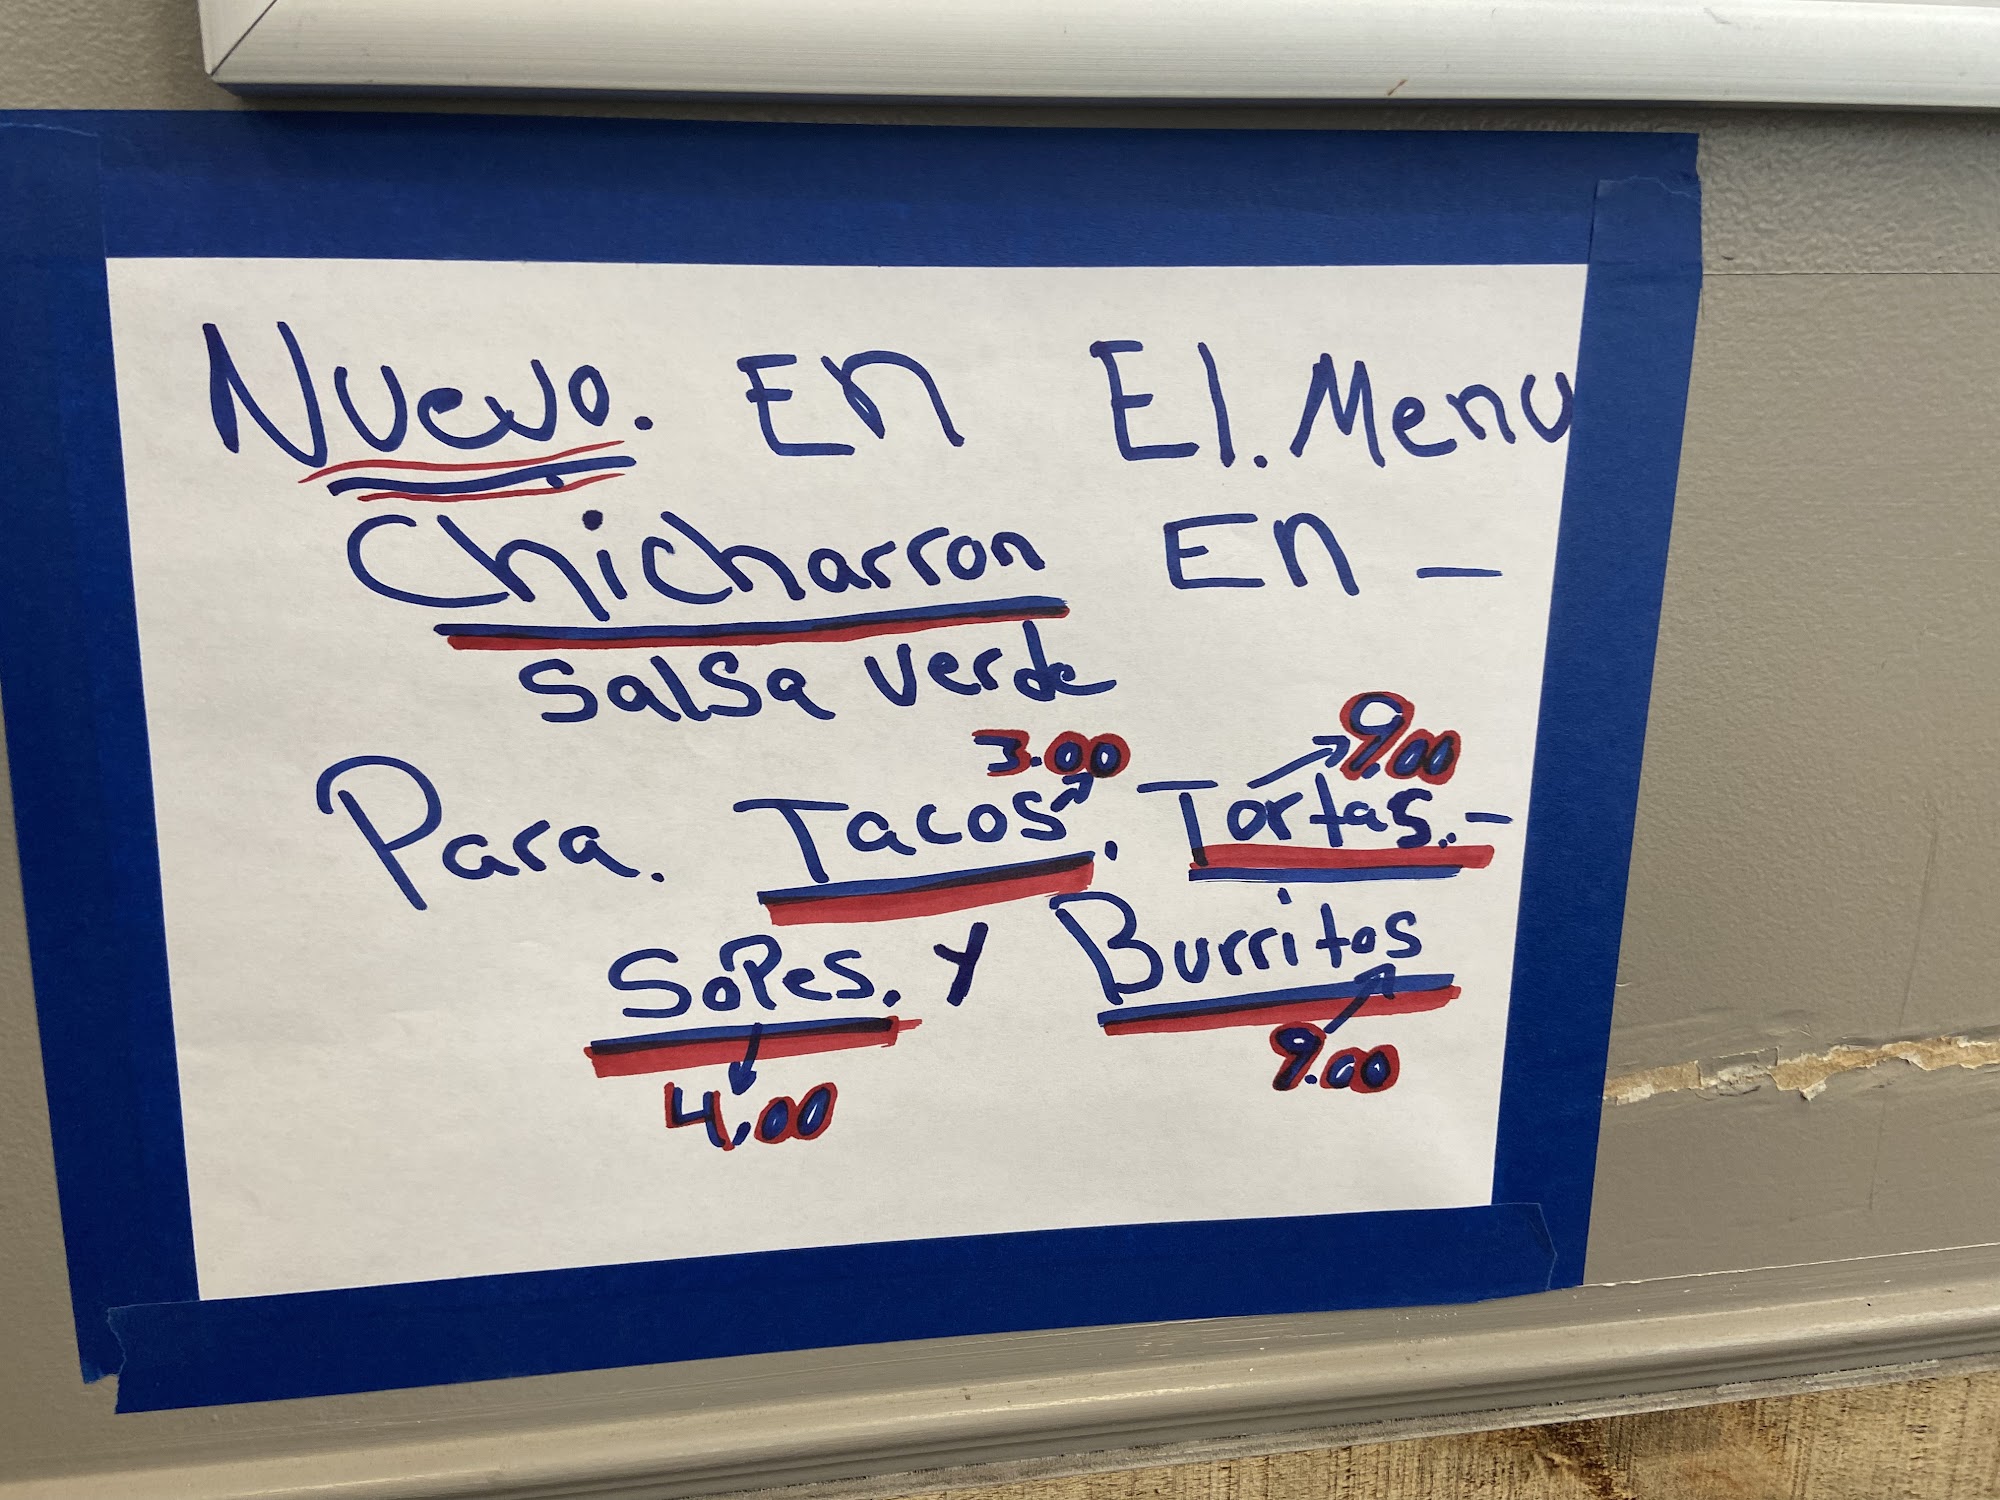 Nuevo. En El. Menu
Chicharron En _
Salsa verde
3.00 9.00
Para. Tacos. Tortas. -
Sopes. y Burritos
4.00 9.00